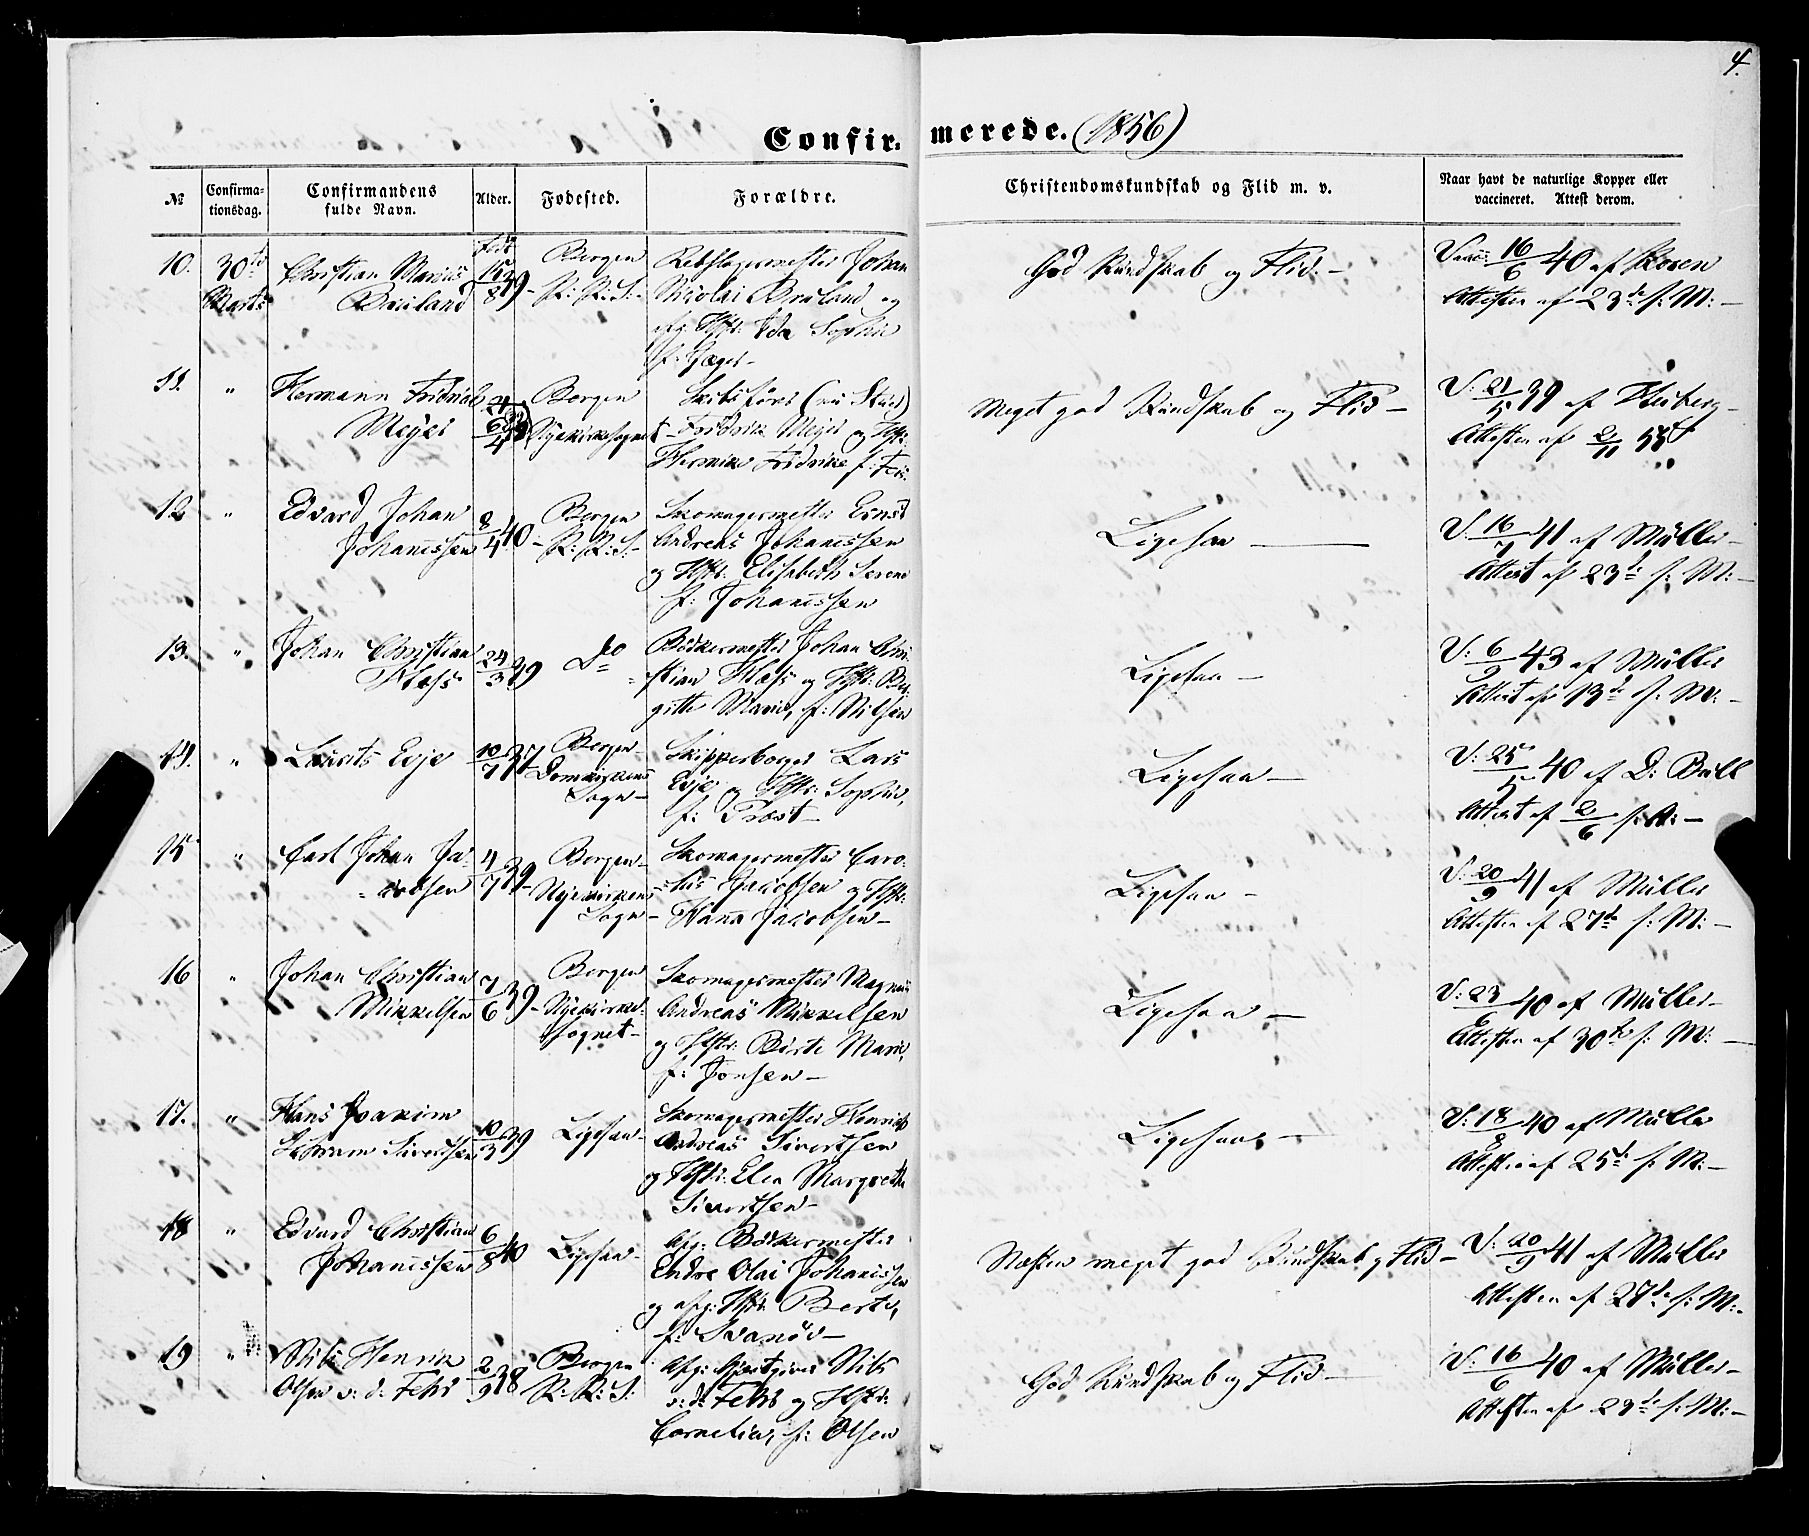 4.
Confir- merede. (1856)
№ Confirma-tionsdag. Confirmandens fulde Navn. Alder. Fødested. Forældre. Christendomskundskab og Flid m. v. Naar havt de naturlige Kopper eller vaccineret. Attest derom.
10. 30te Christian Marius født 15/8 39 Bergen Johan God Kundskab og Flid. — Vacc: 16/6 40 af Koren
Marts K: K: S: Nicolai og Attesten af 23de s: M: —
afg: Hstr: Ida Sophie
f:
11. " Hermann Fridrik Bergen Skibsfører Meget god Kundskab og Flid — V: 21/5 39 af
Meyer 6/4 Nyekirkesognet Fridrik Meyer og Hstr: Attesten af 2/11 55
Hermine Fridrike f:
12 " Edvard Johan 8/4 40 Bergen Skomagermester Ernst Ligesaa — V. 16/7 41 af Müller —
Johannessen K: K: S. — Andreas Johannessen Attest af 23de s: M: —
og Hstr: Elisabeth Serene
f: Johannessen
13. " Johan Christian 24/3 39 Do Bødkermester Johan Chri- Ligesaa — V. 6/9 43 af Müller
Klæss stian Klæss og Hstr: Ber- Attest af 13de s: M: —
gitte Marie, f: Nilsen
14. " Laurits Evje 10/7 37 Bergen Skipperborger Lars Ligesaa — V: 25/5 40 af D: Bull
Domkirkens Evje og Hstr: Sophie, Attest af 2/6 s: A: —
Sogn — f: Prøst —
15 " Carl Johan Ja- 4/7 39 Bergen — Skomagermester Caro- Ligesaa — V: 20/9 41 af Müller
cobsen Nyekirkens lus Jacobsen og Hstr: Attesten af 27de s: M: —
Sogn — Hanna Jacobsen —
16 " Johan Christian 7/6 39 Bergen Skomagermester Magnus Ligesaa — V: 23/6 40 af Müller —
Mikkelsen Nyekirke- Andreas Mikkelsen Attesten af 30te s: M: —
sognet — og Hstr: Birte Marie,
f: Jonsen —
17. " Hans Joakim 10/3 39 Ligesaa — Skomagermester Henrich Ligesaa — V: 18/8 40 af Müller
Schram Sivertsen Andreas Sivertsen Attesten af 25de s: M: —
og Hstr: Elen Margrethe
Sivertsen —
18 " Edvard Christian 6/8 40 Ligesaa — Afg: Bødkermester Næsten meget god Kundskab og Flid — V: 20/9 41 af Müller
Johannessen Endre Olai Johannessen Attesten af 27de s: M: —
og afg: Hstr: Berte,
f: Svanøe —
19 " Nils Henrik 2/9 38 Bergen Afg: Nils God Kundskab og Flid — V: 16/6 40 af Müller —
Olsen v: d: Fehr K: K: S: v: d: Fehr og Hstr: Attesten af 23de s: M: —
Cornelia, f: Olsen